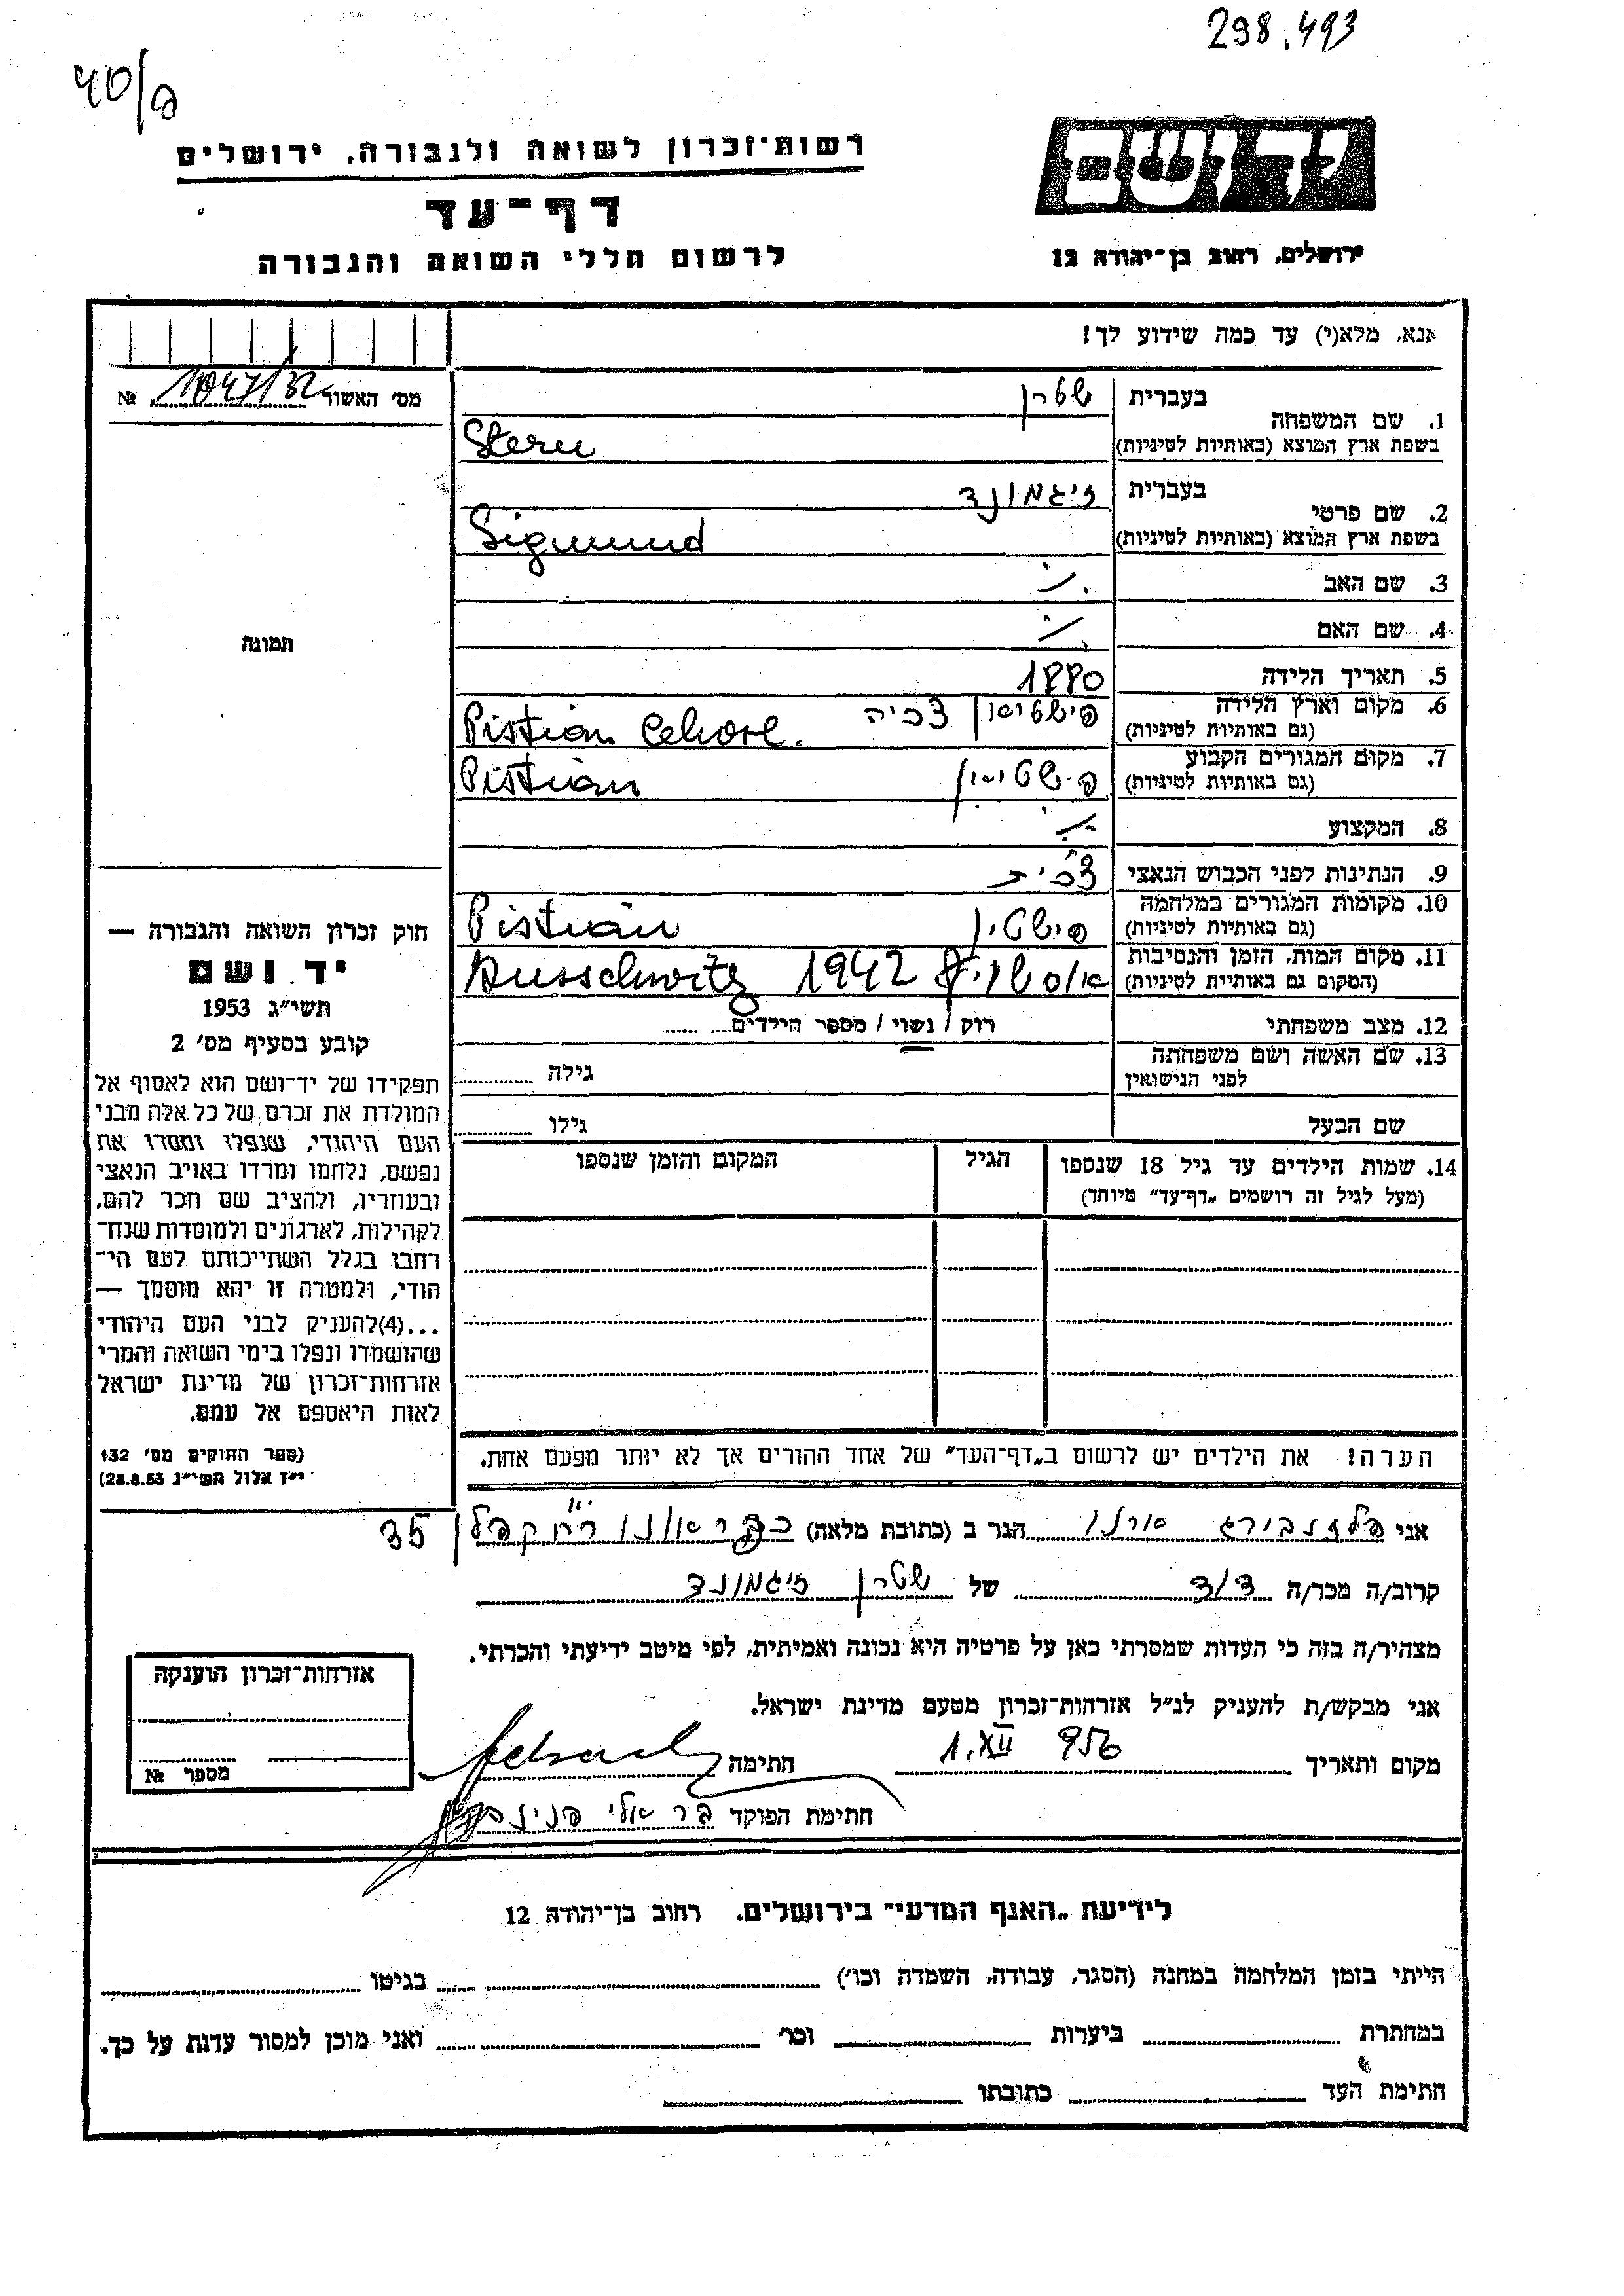 298.493
40/פ
יד ושם
רשות־זכרון לשואה ולגבורה, ירושלים
דף־עד
לרשום חללי השואה והגבורה
ירושלים, רחוב בן־יהודה 12
אנא, מלא(י) עד כמה שידוע לך!
מס' האשור № 1047/32
1. שם המשפחה
בעברית שטרן
בשפת ארץ המוצא (באותיות לטיניות) Stern
2. שם פרטי
בעברית זיגמונד
בשפת ארץ המוצא (באותיות לטיניות) Sigmund
3. שם האב
4. שם האם
5. תאריך הלידה 1880
6. מקום וארץ הלידה פישטיאן צכיה
(גם באותיות לטיניות) Pistian
7. מקום המגורים הקבוע פישטיאן
(גם באותיות לטיניות) Pistian
8. המקצוע
9. הנתינות לפני הכבוש הנאצי צ'כית
10. מקומות המגורים במלחמה פישטין
(גם באותיות לטיניות) Pistián
11. מקום המות, הזמן והנסיבות 1942
(המקום גם באותיות לטיניות) Ausschwitz
12. מצב משפחתי רוק / נשוי / מספר הילדים
13. שם האשה ושם משפחתה
לפני הנישואין גילה
שם הבעל גילו
14. שמות הילדים עד גיל 18 שנספו הגיל המקום והזמן שנספו
(מעל לגיל זה רושמים „דף־עד" מיוחד)
הערה! את הילדים יש לרשום ב„דף־העד" של אחד ההורים אך לא יותר מפעם אחת.
תמונה
חוק זכרון השואה והגבורה —
יד ושם
תשי"ג 1953
קובע בסעיף מס' 2
תפקידו של יד־ושם הוא לאסוף אל
המולדת את זכרם של כל אלה מבני
העם היהודי, שנפלו ומסרו את
נפשם, נלחמו ומרדו באויב הנאצי
ובעוזריו, ולהציב שם וזכר להם,
לקהילות, לארגונים ולמוסדות שנח־
רחבו בגלל השתייכותם לעם הי־
הודי, ולמטרה זו יהא מוסמך —
...(4)להעניק לבני העם היהודי
שהושמדו ונפלו בימי השואה והמרי
אזרחות־זכרון של מדינת ישראל
לאות היאספם אל עמם.
(ספר החוקים מס' 132
י"ז אלול תשי"ג 28.8.53)
אני הגר ב (כתובת מלאה) 35
קרוב/ה מכר/ה דוד של שטרן זיגמונד
מצהיר/ה בזה כי העדות שמסרתי כאן על פרטיה היא נכונה ואמיתית, לפי מיטב ידיעתי והכרתי.
אני מבקש/ת להעניק לנ"ל אזרחות־זכרון מטעם מדינת ישראל.
מקום ותאריך 1.XII 956 חתימה
חתימת הפוקד
אזרחות־זכרון הוענקה
מספר №
לידיעת „האגף המדעי" בירושלים. רחוב בן־יהודה 12
הייתי בזמן המלחמה במחנה (הסגר, עבודה, השמדה וכו') בגיטו
במחתרת ביערות וכו' ואני מוכן למסור עדות על כך.
חתימת העד כתובתו